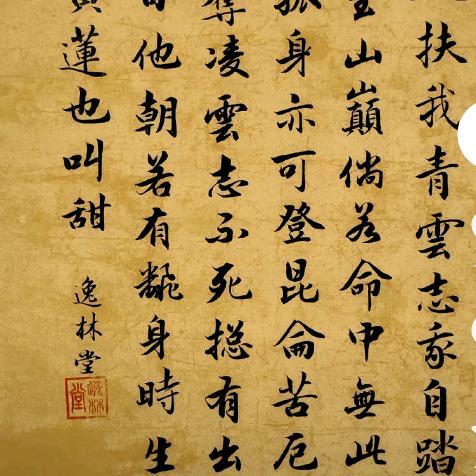 扶我青雲志我自踏
至山巔倘若命中無此
孤身亦可登昆侖苦厄
奪凌雲志不死總有出
日他朝若有飜身時生
黃蓮也叫甜
逸林堂
逸林堂